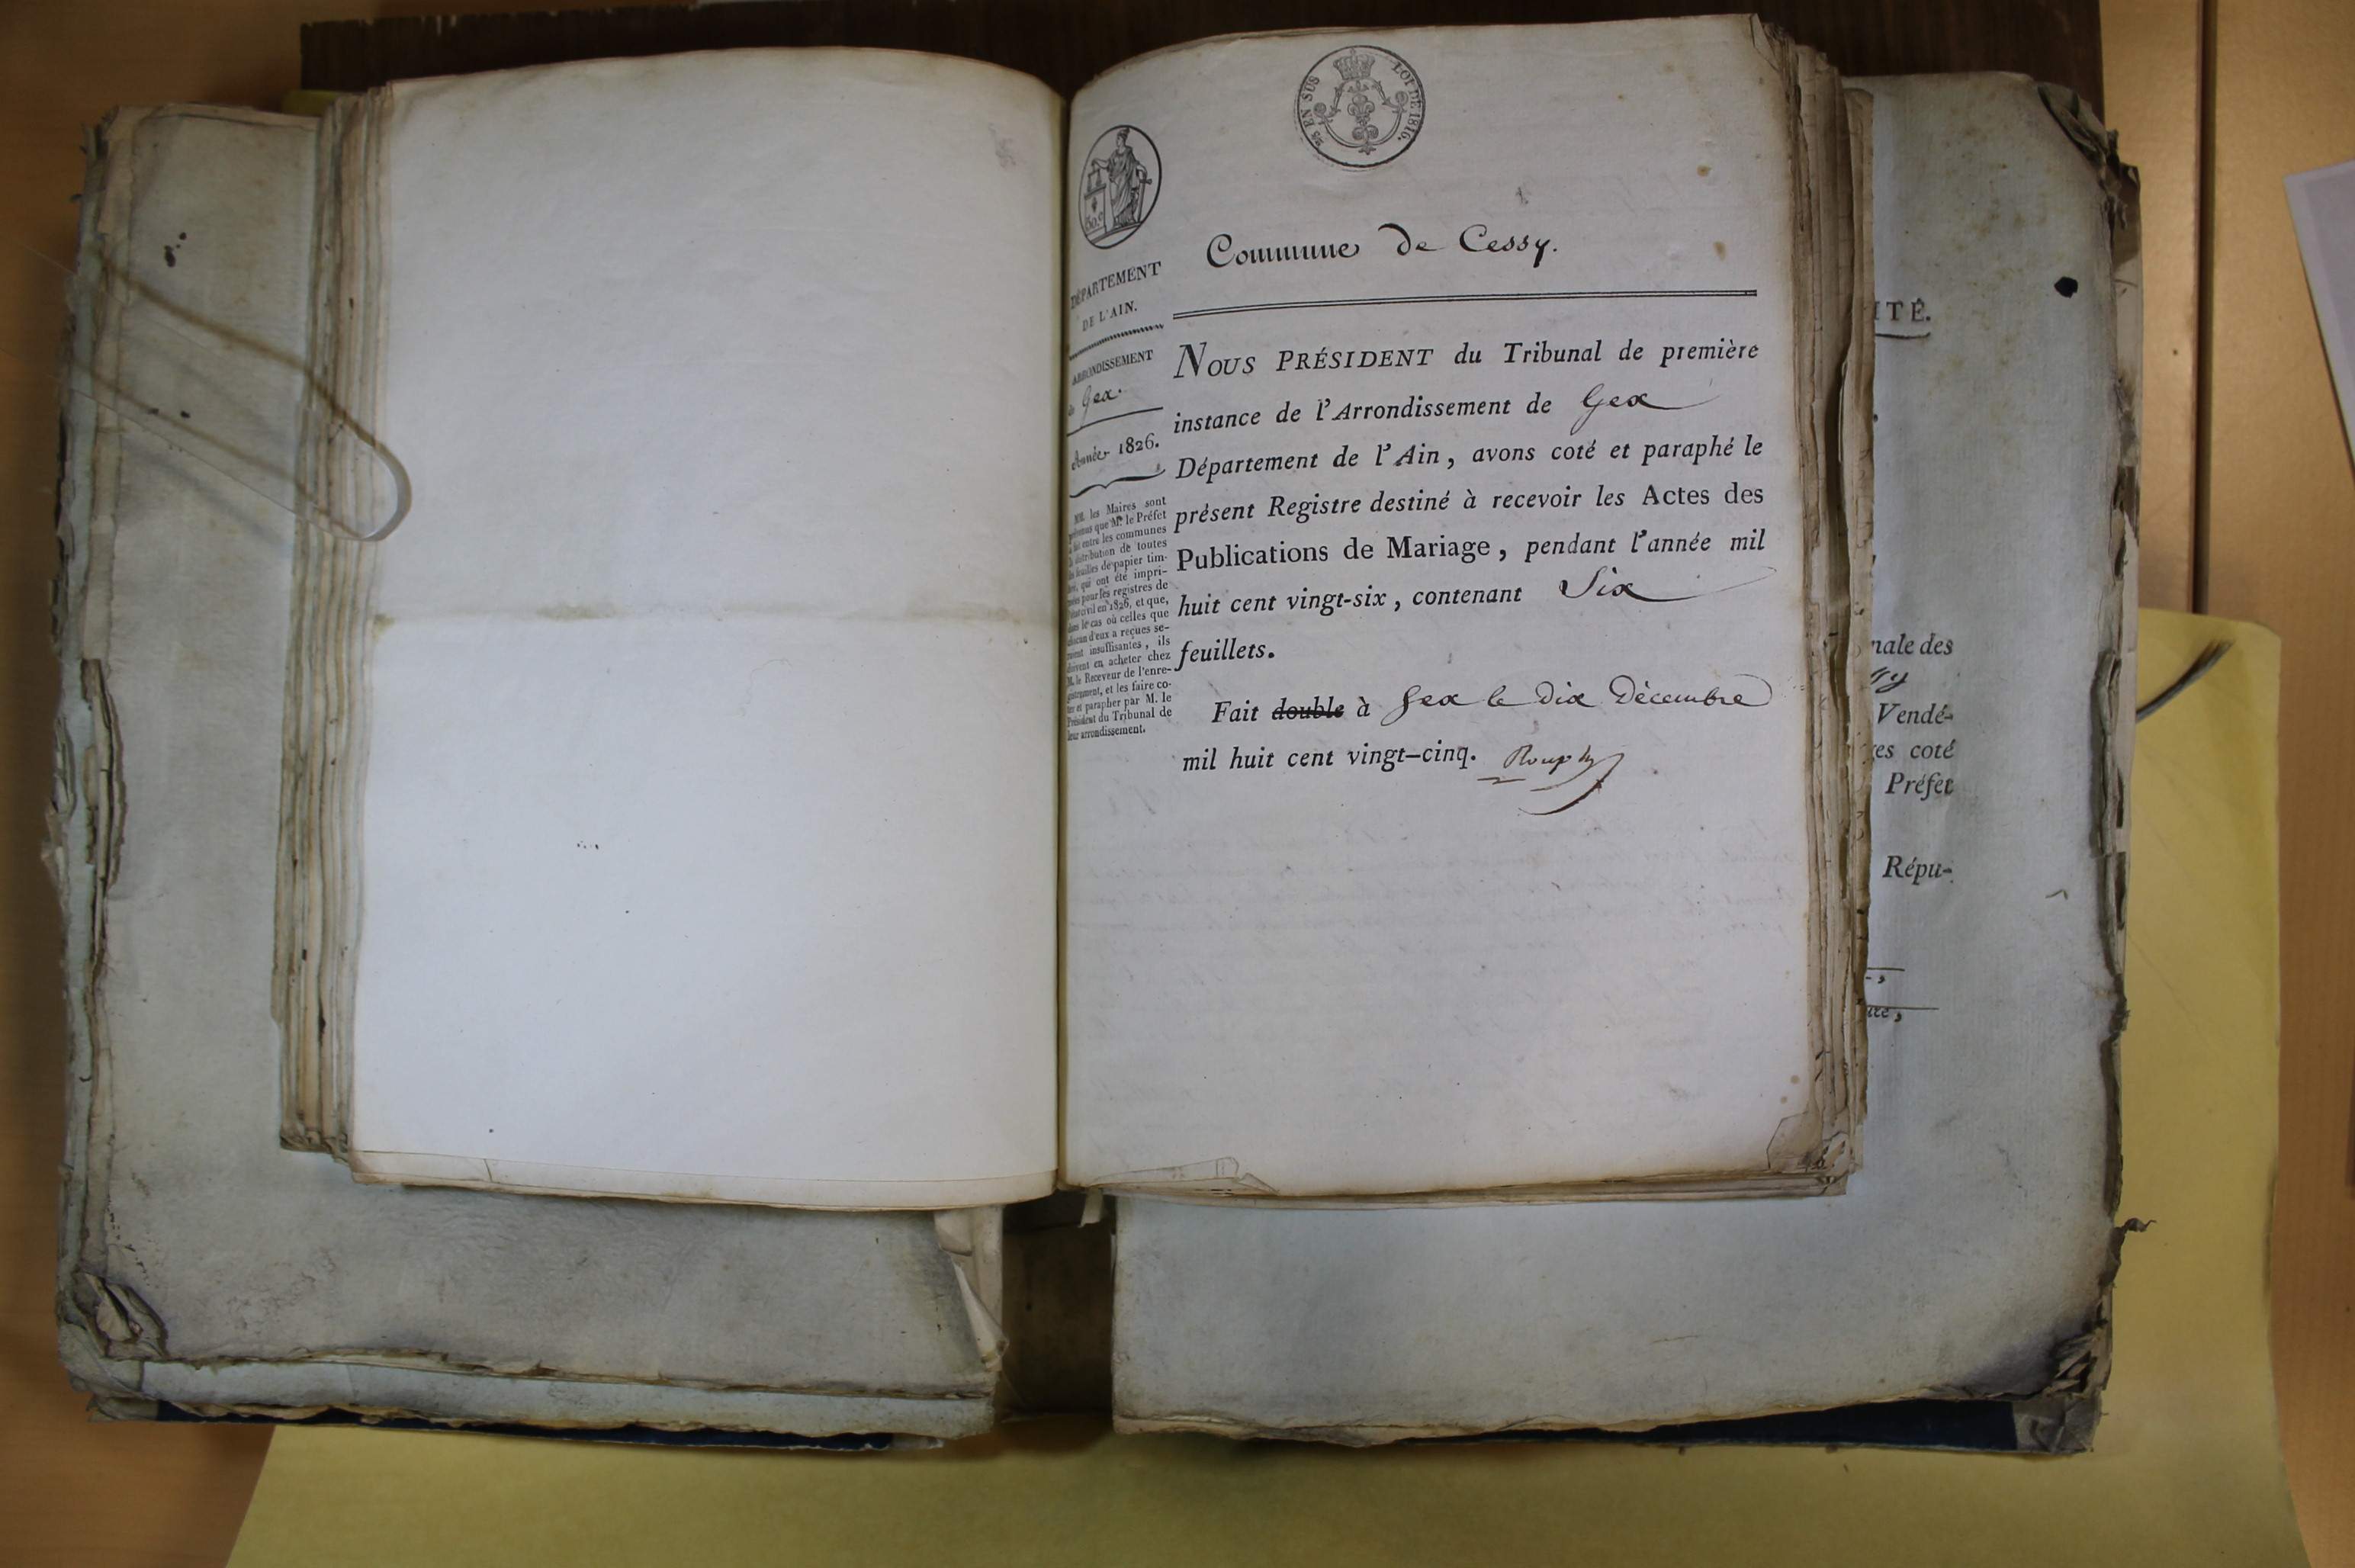 LOI DE 1816.
EN SUS
50 c
Commune de Cessy.
DÉPARTEMENT
DE L'AIN.
ARRONDISSEMENT
de Gex.
Année 1826.
MM. les Maires sont
prévenus que M. le Préfet
a fait entre les communes
la distribution de toutes
les feuilles de papier tim-
bré, qui ont été impri-
mées pour les registres de
l'état civil en 1826, et que,
dans le cas où celles que
chacun d'eux a reçues se-
roient insuffisantes, ils
doivent en acheter chez
M. le Receveur de l'enre-
gistrement, et les faire co-
ter et parapher par M. le
Président du Tribunal de
leur arrondissement.
NOUS PRÉSIDENT du Tribunal de première
instance de l'Arrondissement de Gex
Département de l'Ain, avons coté et paraphé le
présent Registre destiné à recevoir les Actes des
Publications de Mariage, pendant l'année mil
huit cent vingt-six, contenant Six
feuillets.
Fait double à Gex le Dix Décembre
mil huit cent vingt-cinq.
ITÉ.
nale des
Vendé-
es coté
Préfet
Répu-